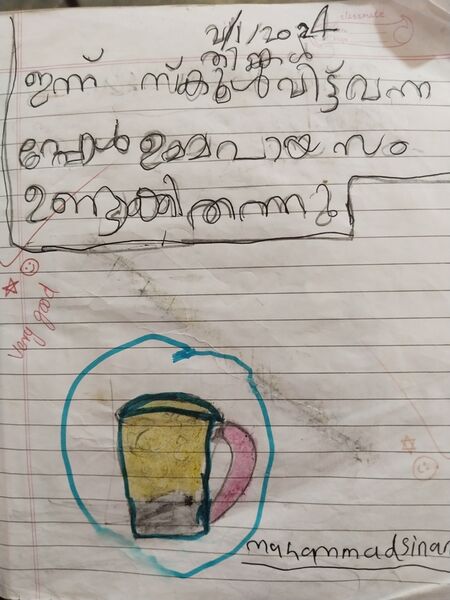 classmate
2/1/2024
തിങ്കൾ
ഇന്ന് സ്കൂൾവിട്ട് വന്ന
പ്പോൾ ഉമ്മ പായസം
ഉണ്ടാക്കി തന്നു
Very good
muhammadsinan